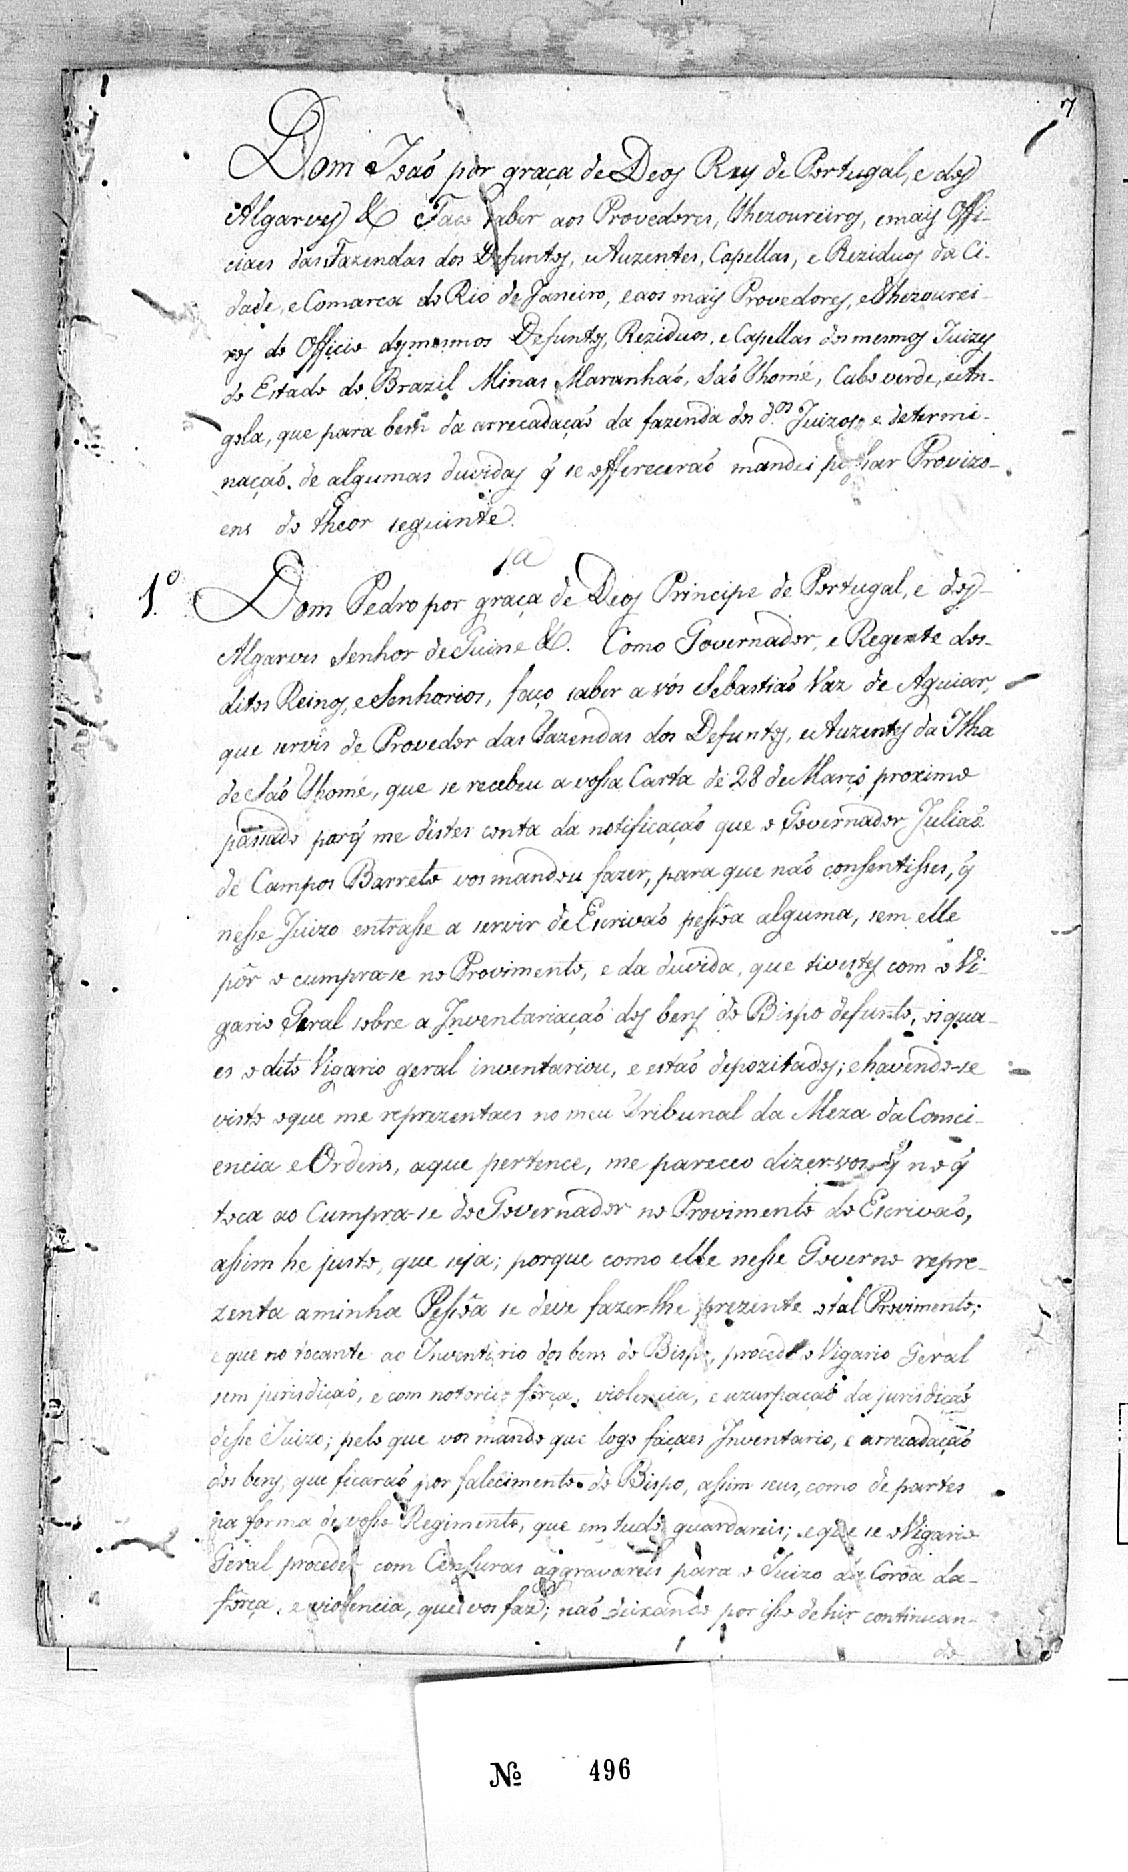 7
Dom Joaõ por graça de Deos Rey de Portugal, e dos
Algarves &. Faço saber aos Provedores, Thezoureiros, e mais Offi-
ciaes das Fazendas dos Defuntos, e Auzentes, Capellas, e Reziduos da Ci-
dade, e Comarca do Rio de Janeiro, e aos mais Provedores, e Thezourei-
ros do Officio dos mesmos Defuntos, Reziduos, e Capellas dos mesmos Juizes
do Estado do Brazil Minas Maranhaõ, Saõ Thomé, Cabo verde, e An-
gola, que para bem da arrecadaçaõ da fazenda dos d.os Juizos, e determi-
naçaõ de algumas duvidas q̃ se offereceraõ mandei passar Provizo-
ens do theor seguinte.
1.a
1.o Dom Pedro por graça de Deos Principe de Portugal, e dos
Algarves Senhor de Guiné &. Como Governador, e Regente dos
ditos Reinos, e Senhorios, faço saber a vós Sebastiaõ Vaz de Aguiar,
que servis de Provedor das Fazendas dos Defuntos, e Auzentes da Ilha
de Saõ Thomé, que se recebeu a vossa Carta de 28 de Março proximo
passado porq̃ me distes conta da notificaçaõ que o Governador Juliaõ
de Campos Barreto vos mandou fazer, para que naõ consentisses, q̃
nesse Juizo entrasse a servir de Escrivaõ pessôa alguma, sem elle
pôr o cumpra-se no Provimento, e da duvida, que tivestes com o Vi-
gario Geral sobre a Inventariaçaõ dos bens do Bispo defunto, os qua-
es o dito Vigario geral inventariou, e estaõ depozitados; e havendo-se
visto o que me reprezentaes no meu Tribunal da Meza da Consci-
encia e Ordens, a que pertence, me pareceo dizer-vos q̃ no q̃
toca ao Cumpra-se do Governador no Provimento do Escrivaõ,
assim he justo, que seja; porque como elle nesse Governo repre-
zenta a minha Pessôa se deve fazer-lhe prezente o tal Provimento;
e que no tocante ao Inventario dos bens do Bispo, procedeo o Vigario Geral
sem jurisdiçaõ, e com notoria força, violencia, e uzurpaçaõ da jurisdiçaõ
desse Juizo; pelo que vos mando que logo façaes Inventario, e arrecadaçaõ
dos bens, que ficaraõ por falecimento do Bispo, assim seus, como de partes
na forma do vosso Regimento, que em tudo guardareis; e que se o Vigario
Geral proceder com Censuras aggravareis para o Juizo da Corôa da
força, e violencia, que vos faz; naõ deixando por isso de hir continuan-
do
Nº 496